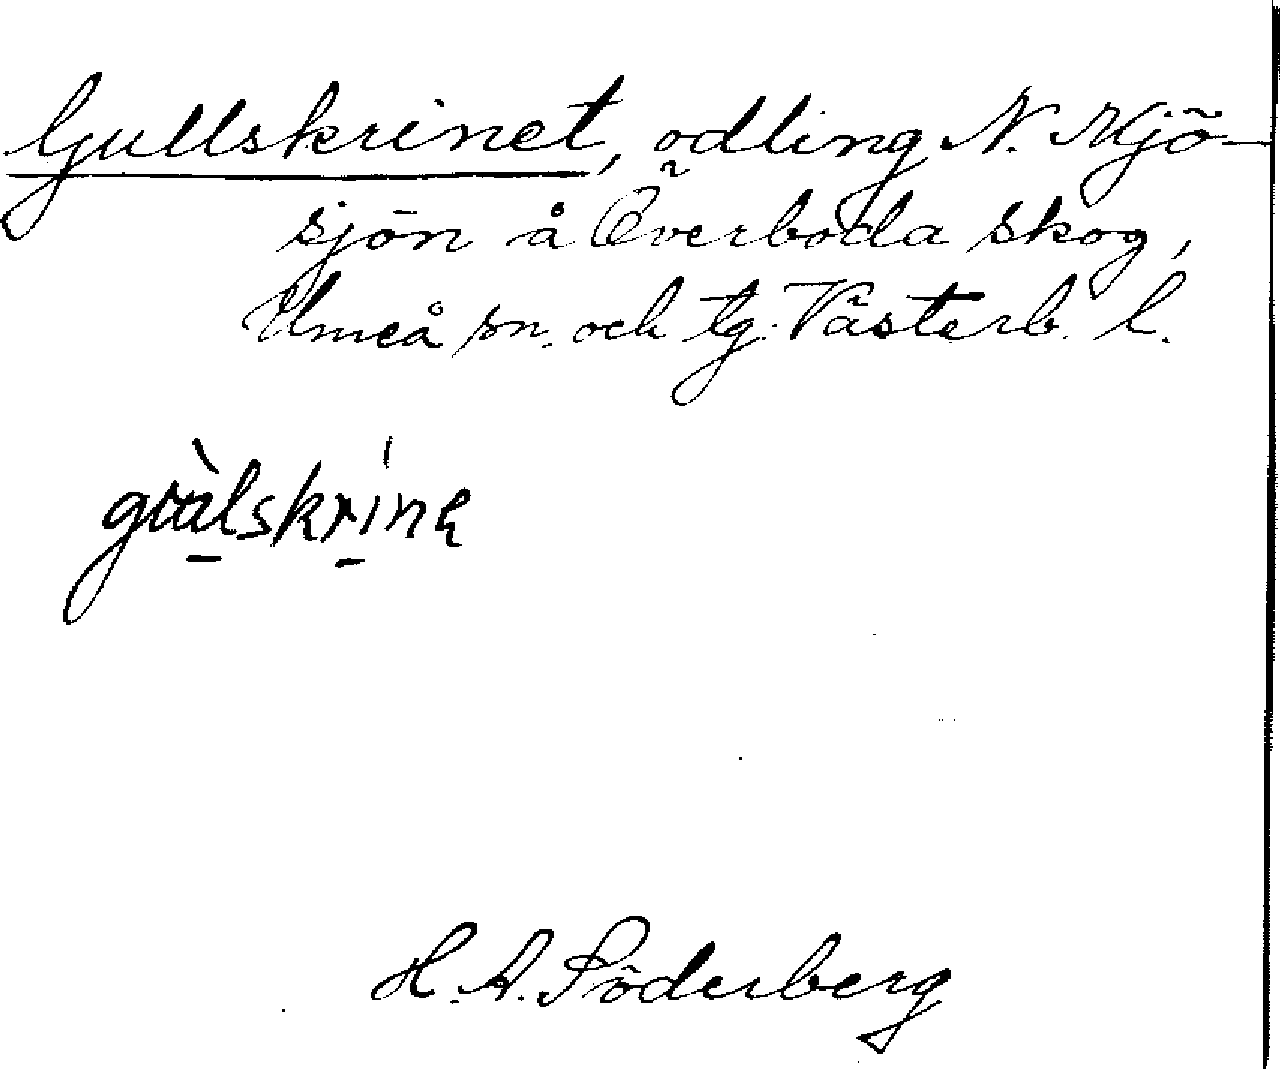 Gullskrinet, odling N. Mjö-
sjön å Överboda skog,
Umeå sn. och tg. Västerb. l.
H. A. Söderberg